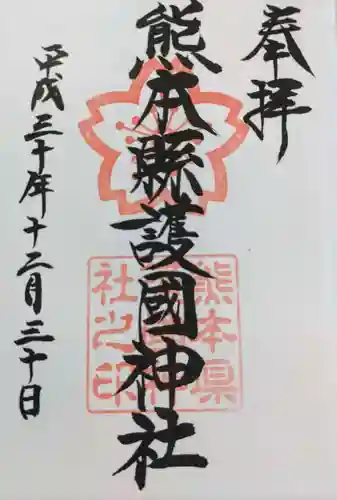 奉拝
熊本縣護國神社
熊本県
護國神
社之印
平成三十年十二月三十日